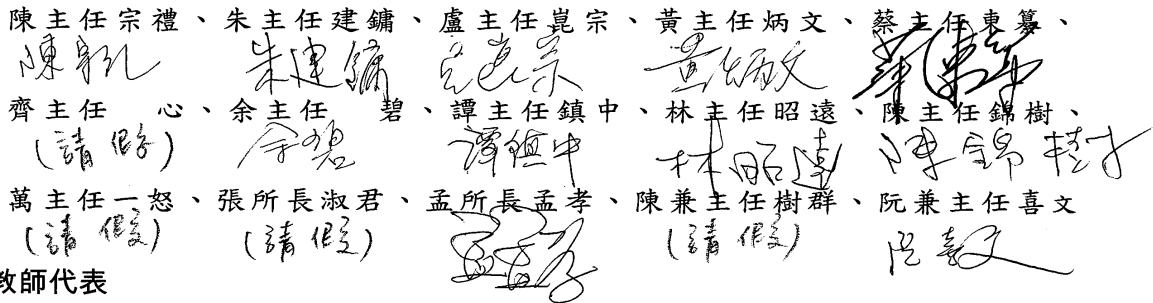 陳主任宗禮、朱主任建鏞、盧主任崑宗、黃主任炳文、蔡主任東纂、
陳宗礼 朱建鏞 盧崑宗 黃炳文 蔡東纂
齊主任 心、余主任 碧、譚主任鎮中、林主任昭遠、陳主任錦樹、
(請假) 余碧 譚鎮中 林昭遠 陳錦樹
萬主任一怒、張所長淑君、孟所長孟孝、陳兼主任樹群、阮兼主任喜文
(請假) (請假) 孟孟孝 (請假) 阮喜文
教師代表